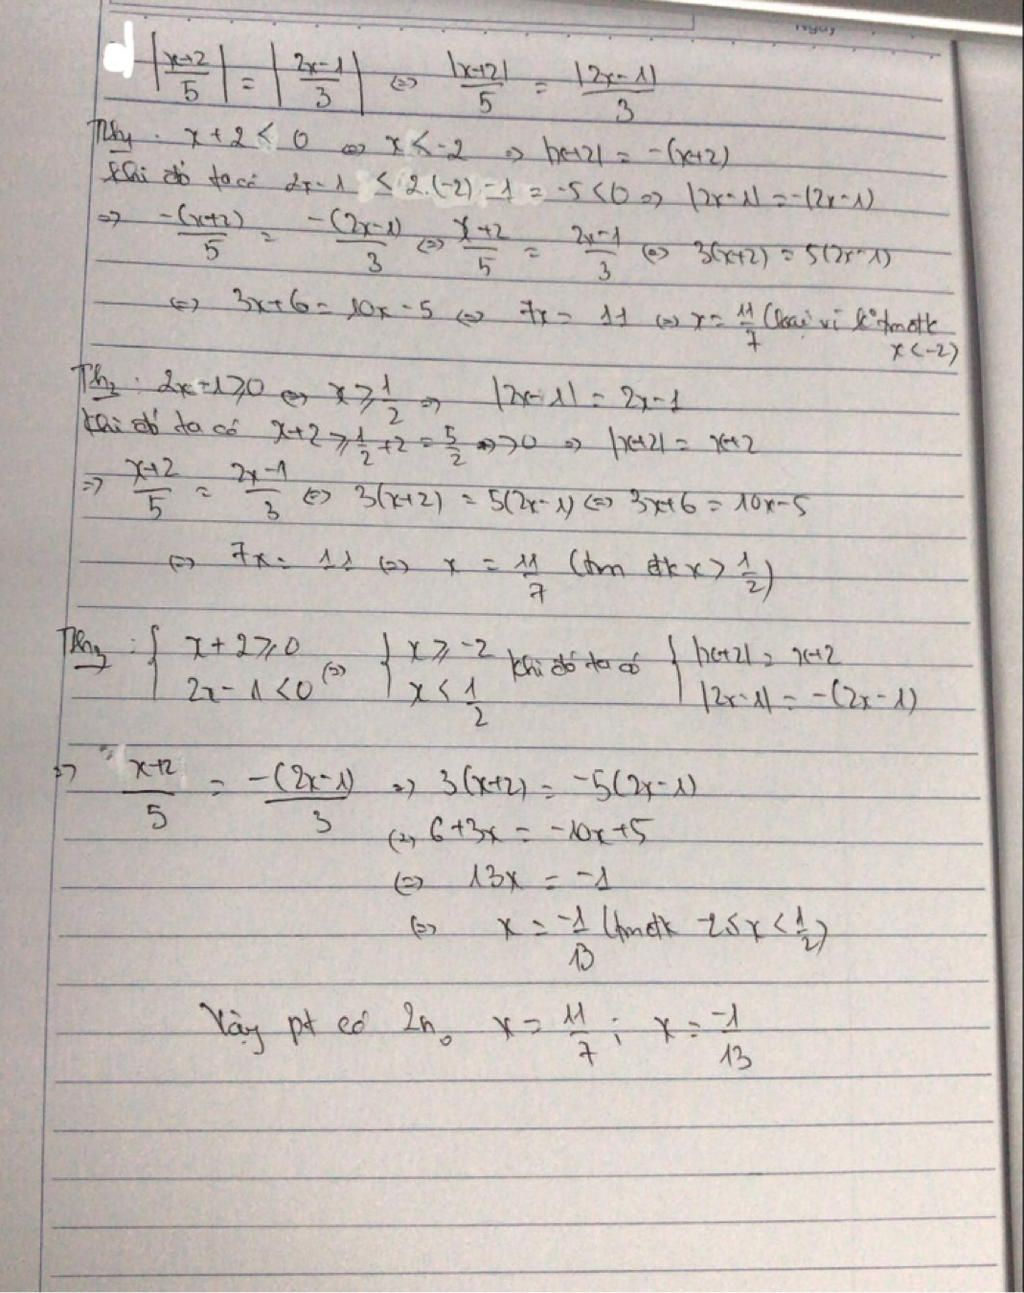 Ngày
d |x+2/5| = |2x-1/3| ⇔ |x+2|/5 = |2x-1|/3
Th1: x+2 < 0 ⇔ x < -2 ⇒ |x+2| = -(x+2)
khi đó ta có 2x-1 < 2.(-2)-1 = -5 < 0 ⇒ |2x-1| = -(2x-1)
⇒ -(x+2)/5 = -(2x-1)/3 ⇔ x+2/5 = 2x-1/3 ⇔ 3(x+2) = 5(2x-1)
⇔ 3x+6 = 10x-5 ⇔ 7x = 11 ⇔ x = 11/7 (loại vì k° tmđk
x < -2)
Th2: 2x-1 ≥ 0 ⇔ x ≥ 1/2 ⇒ |2x-1| = 2x-1
khi đó ta có x+2 ≥ 1/2+2 = 5/2 > 0 ⇒ |x+2| = x+2
⇒ x+2/5 = 2x-1/3 ⇔ 3(x+2) = 5(2x-1) ⇔ 3x+6 = 10x-5
⇔ 7x = 11 ⇔ x = 11/7 (tm đk x > 1/2)
Th3: { x+2 ≥ 0 ; 2x-1 < 0 ⇔ { x ≥ -2 ; x < 1/2 khi đó ta có { |x+2| = x+2 ; |2x-1| = -(2x-1)
⇒ x+2/5 = -(2x-1)/3 ⇒ 3(x+2) = -5(2x-1)
⇔ 6+3x = -10x+5
⇔ 13x = -1
⇔ x = -1/13 (tmđk -2 ≤ x < 1/2)
Vậy pt có 2n° x = 11/7 ; x = -1/13